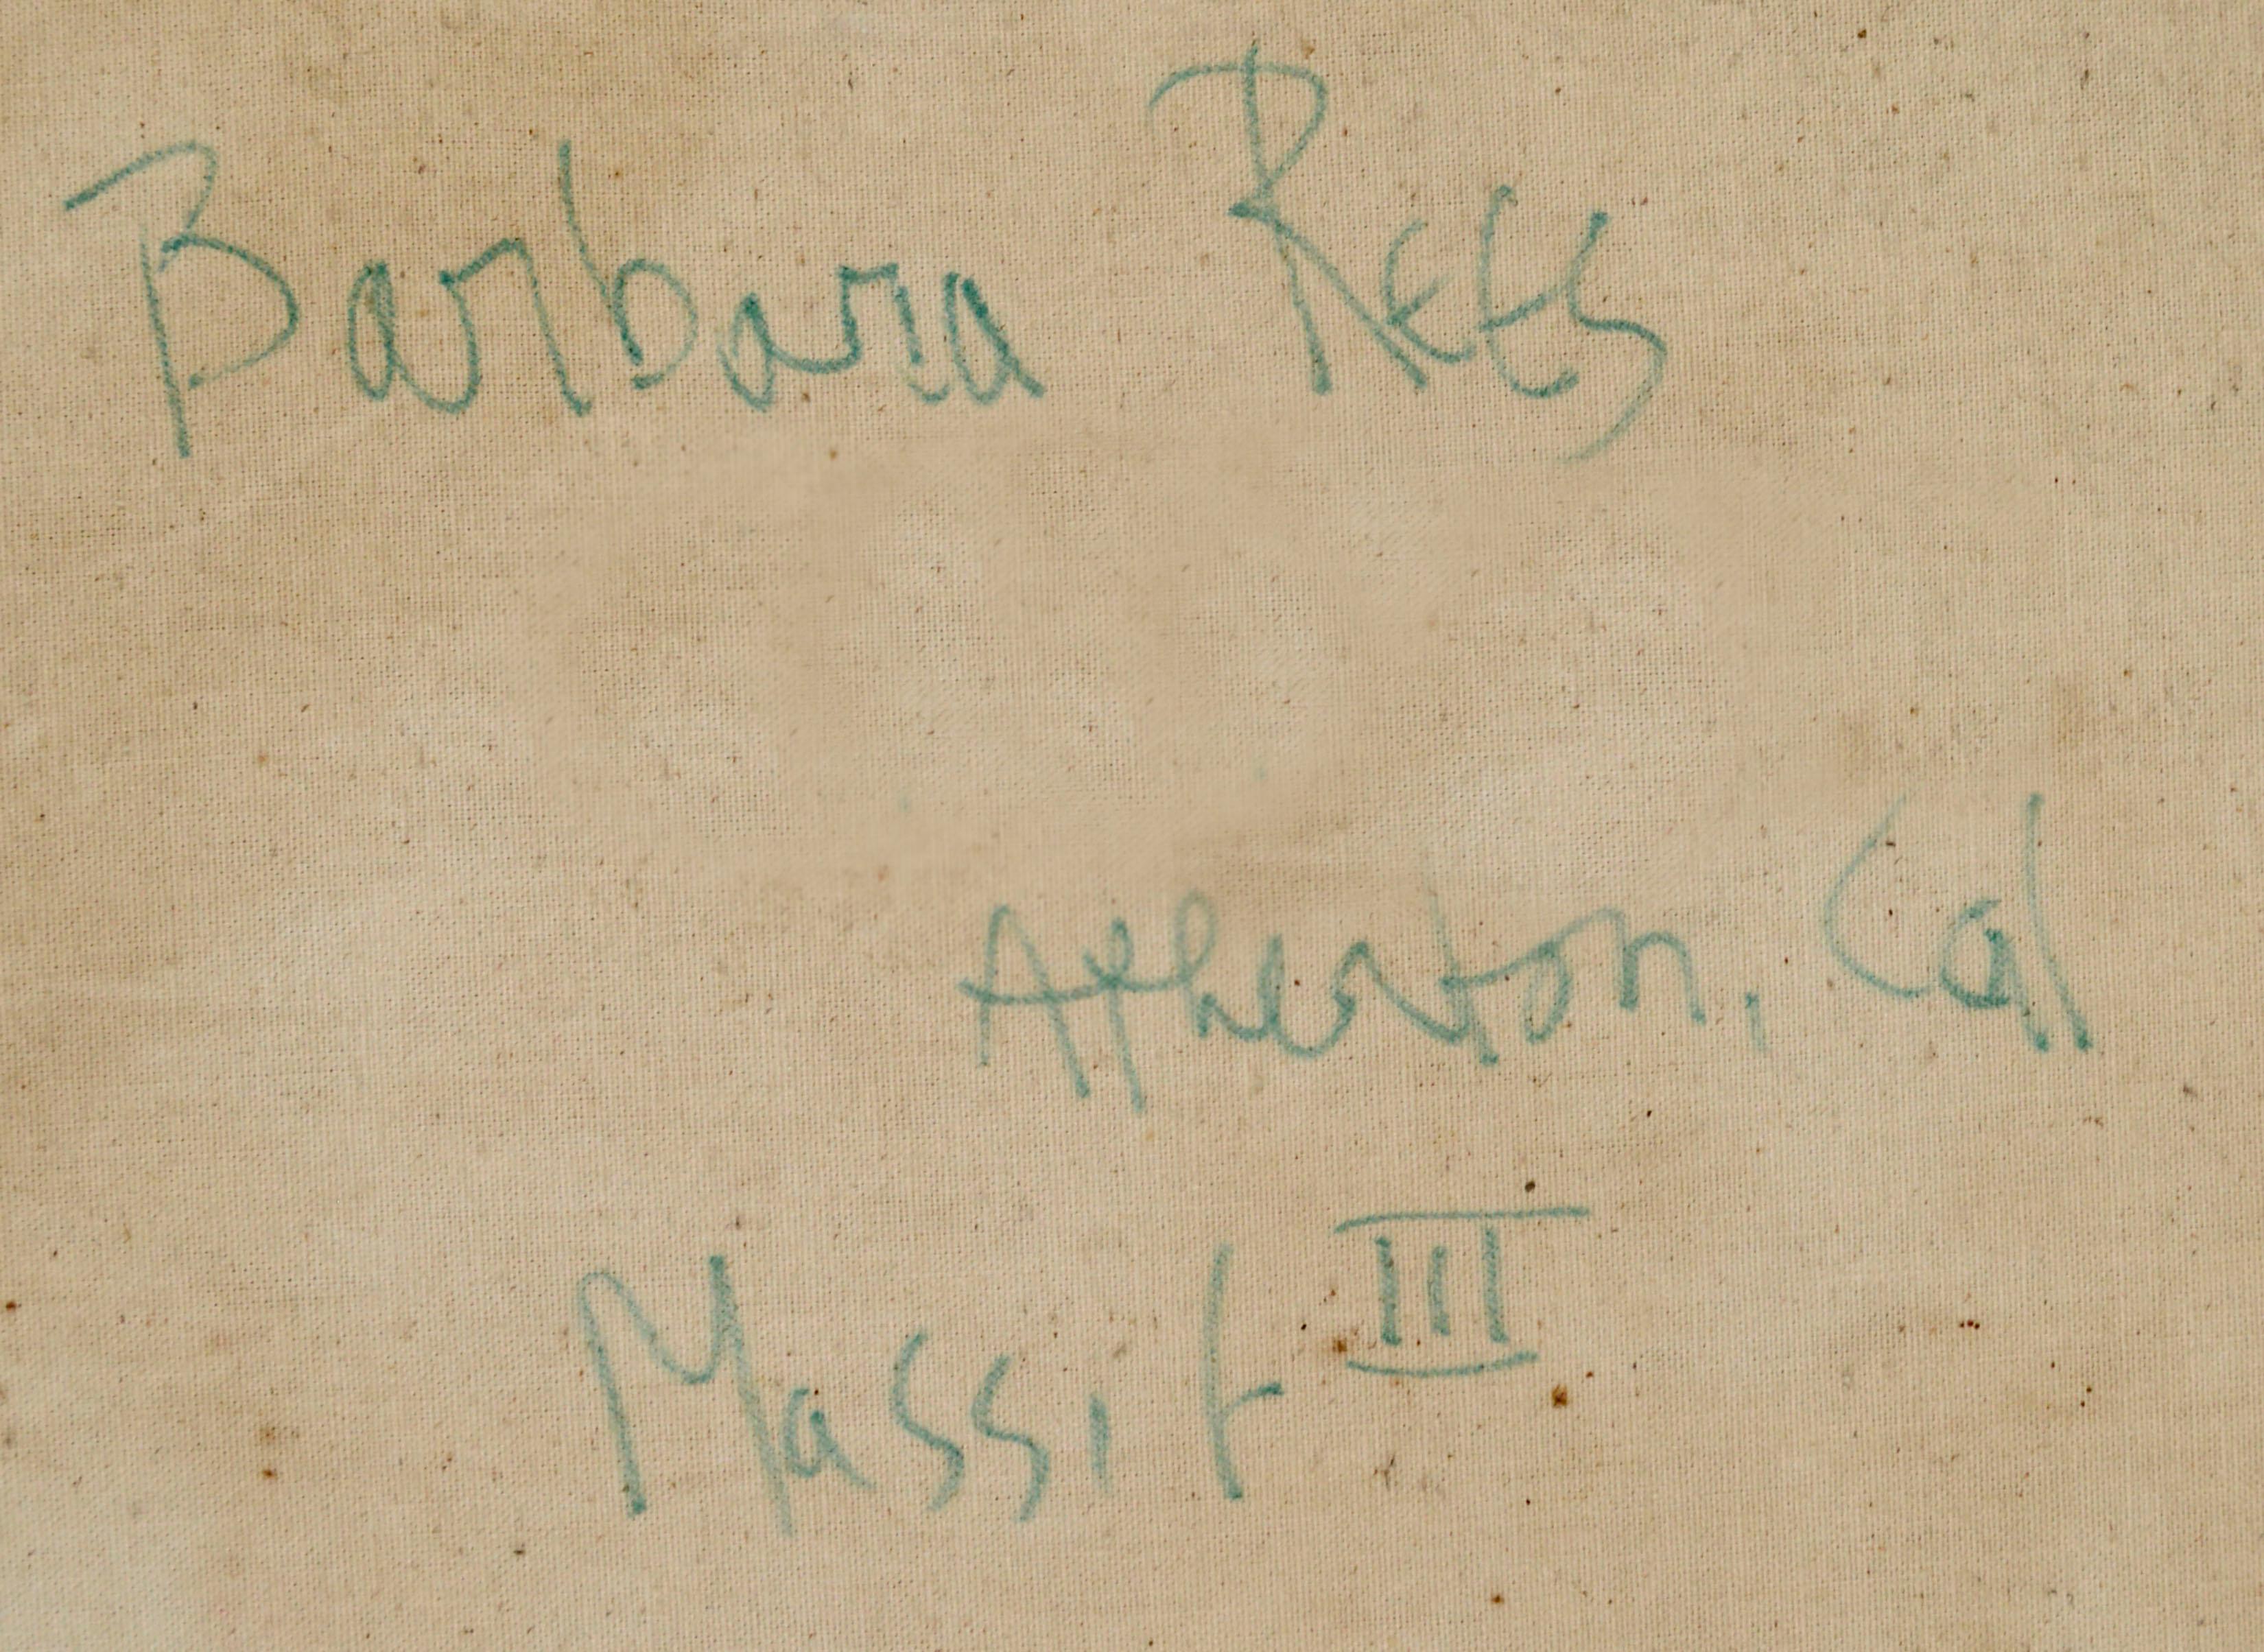 Barbara Rees
Atherton, Cal
Massif III